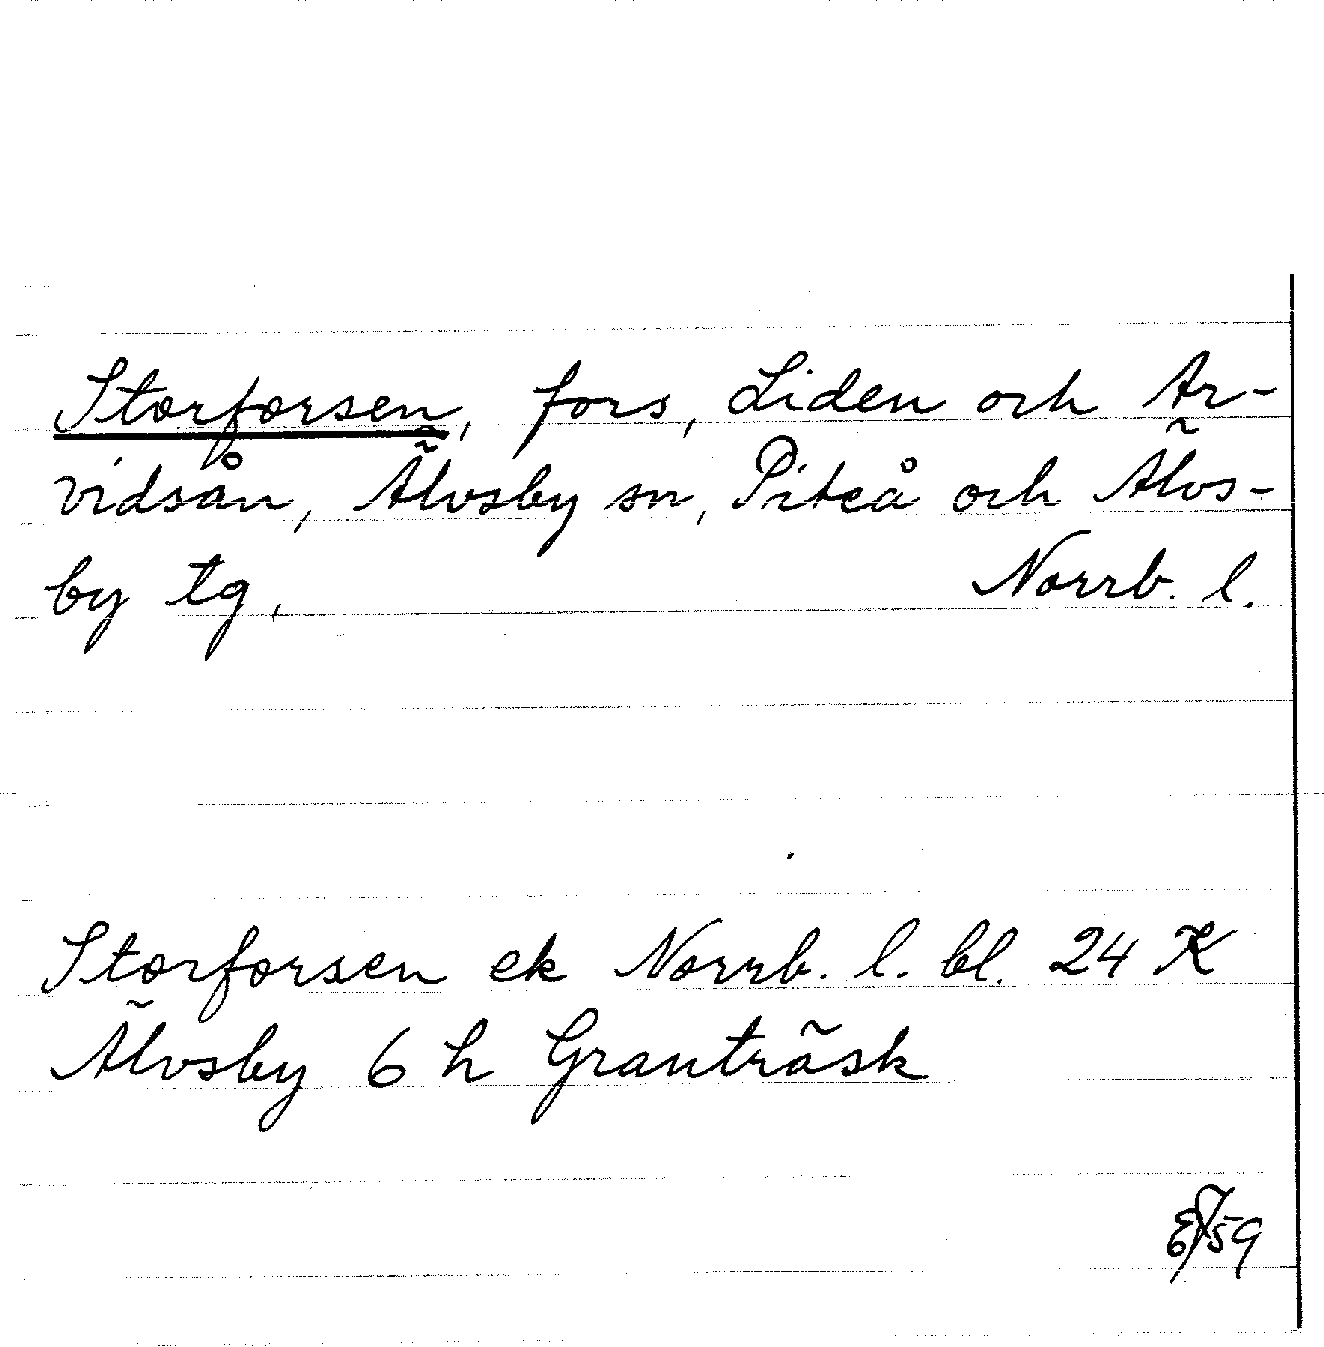 Storforsen, fors, Liden och Ar-
vidsån, Älvsby sn, Piteå och Älvs-
by tg, Norrb. l.
Storforsen ek Norrb. l. bl. 24 K
Älvsby 6 h Granträsk